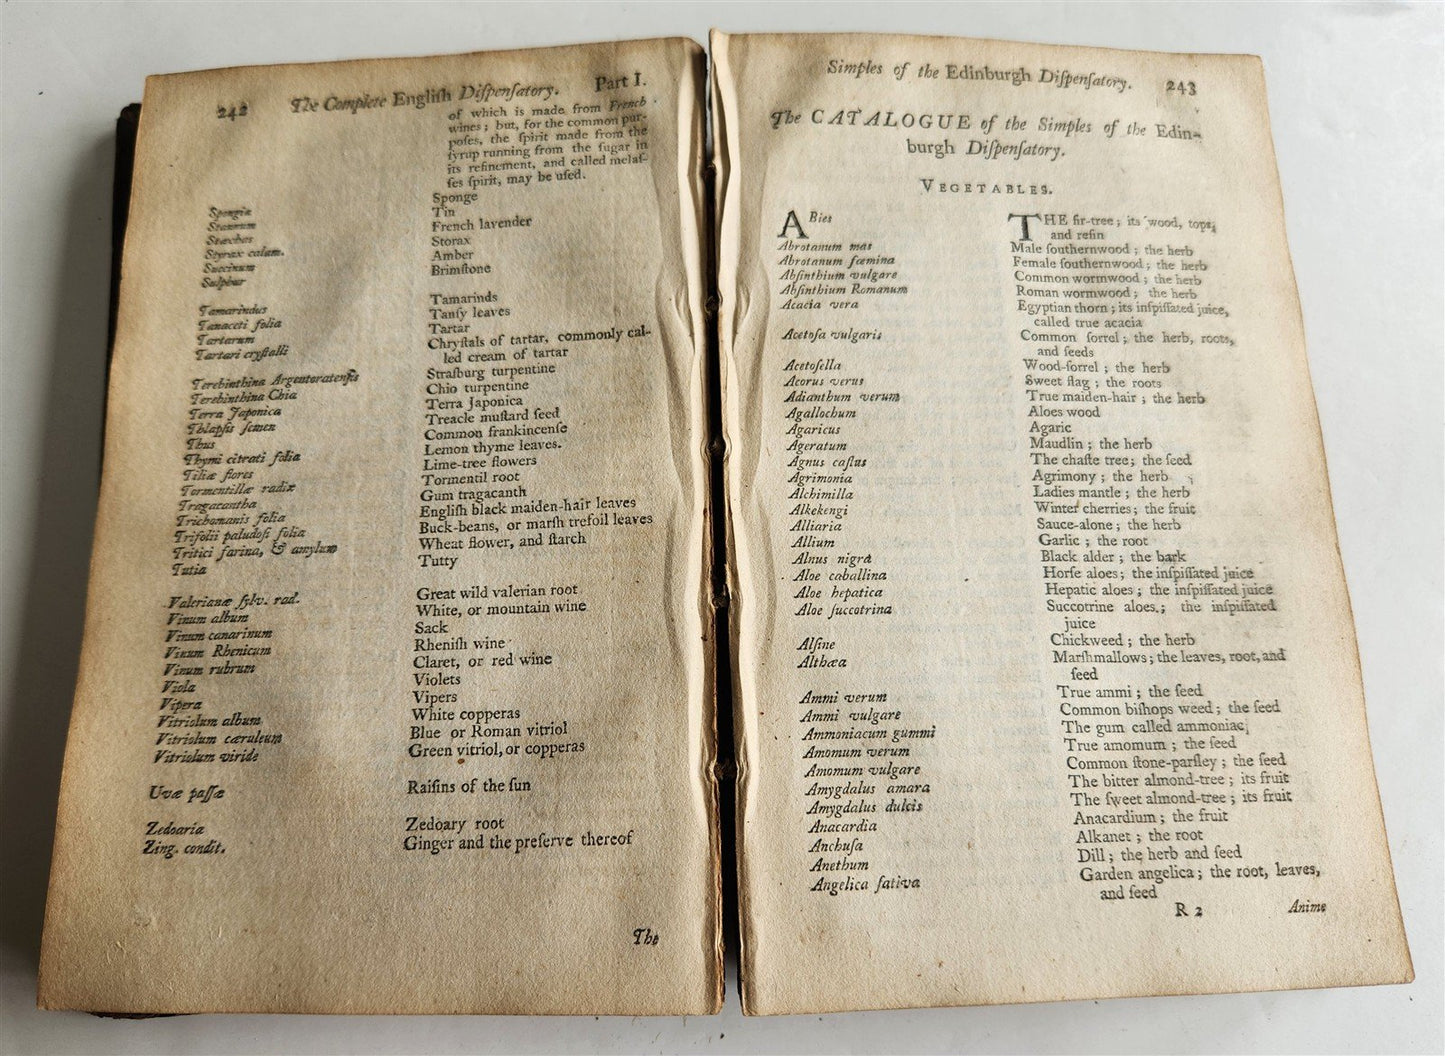 242 The Complete Engliſh Diſpenſatory. Part I.
of which is made from French
wines; but, for the common pur-
poſes, the ſpirit made from the
ſyrup running from the ſugar in
its refinement, and called melaſ-
ſes ſpirit, may be uſed.
Spongia Sponge
Stannum Tin
Stœchas French lavender
Styrax calam. Storax
Succinum Amber
Sulphur Brimſtone
Tamarindus Tamarinds
Tanaceti folia Tanſy leaves
Tartarum Tartar
Tartari cryſtalli Chryſtals of tartar, commonly cal-
led cream of tartar
Terebinthina Argentoratenſis Straſburg turpentine
Terebinthina Chia Chio turpentine
Terra Japonica Terra Japonica
Thlaſpis ſemen Treacle muſtard ſeed
Thus Common frankincenſe
Thymi citrati folia Lemon thyme leaves.
Tiliæ flores Lime-tree flowers
Tormentillæ radix Tormentil root
Tragacantha Gum tragacanth
Trichomanis folia Engliſh black maiden-hair leaves
Trifolii paludoſi folia Buck-beans, or marſh trefoil leaves
Tritici farina, & amylum Wheat flower, and ſtarch
Tutia Tutty
Valerianæ ſylv. rad. Great wild valerian root
Vinum album White, or mountain wine
Vinum canarinum Sack
Vinum Rhenicum Rheniſh wine
Vinum rubrum Claret, or red wine
Viola Violets
Vipera Vipers
Vitriolum album White copperas
Vitriolum cæruleum Blue or Roman vitriol
Vitriolum viride Green vitriol, or copperas
Uvæ paſſæ Raiſins of the ſun
Zedoaria Zedoary root
Zing. condit. Ginger and the preſerve thereof
The
Simples of the Edinburgh Diſpenſatory. 243
The CATALOGUE of the Simples of the Edin-
burgh Diſpenſatory.
VEGETABLES.
ABies THE fir-tree; its wood, tops,
and reſin
Abrotanum mas Male ſouthernwood; the herb
Abrotanum fœmina Female ſouthernwood; the herb
Abſinthium vulgare Common wormwood; the herb
Abſinthium Romanum Roman wormwood; the herb
Acacia vera Egyptian thorn; its inſpiſſated juice,
called true acacia
Acetoſa vulgaris Common ſorrel; the herb, roots,
and ſeeds
Acetoſella Wood-ſorrel; the herb
Acorus verus Sweet flag; the roots
Adianthum verum True maiden-hair; the herb
Agallochum Aloes wood
Agaricus Agaric
Ageratum Maudlin; the herb
Agnus caſtus The chaſte tree; the ſeed
Agrimonia Agrimony; the herb
Alchimilla Ladies mantle; the herb
Alkekengi Winter cherries; the fruit
Alliaria Sauce-alone; the herb
Allium Garlic; the root
Alnus nigra Black alder; the bark
Aloe caballina Horſe aloes; the inſpiſſated juice
Aloe hepatica Hepatic aloes; the inſpiſſated juice
Aloe ſuccotrina Succotrine aloes; the inſpiſſated
juice
Alſine Chickweed; the herb
Althæa Marſhmallows; the leaves, root, and
ſeed
Ammi verum True ammi; the ſeed
Ammi vulgare Common biſhops weed; the ſeed
Ammoniacum gummi The gum called ammoniac
Amomum verum True amomum; the ſeed
Amomum vulgare Common ſtone-parſley; the ſeed
Amygdalus amara The bitter almond-tree; its fruit
Amygdalus dulcis The ſweet almond-tree; its fruit
Anacardia Anacardium; the fruit
Anchuſa Alkanet; the root
Anethum Dill; the herb and ſeed
Angelica ſativa Garden angelica; the root, leaves,
and ſeed
R 2 Anime